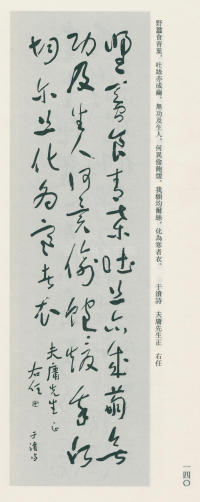 野蠶食青葉,吐絲亦成繭。無功及生人,何異偷飽煖。我願均爾絲,化為寒者衣。　于濆詩　夫庸先生正　右任
野蠶食青葉吐絲亦成繭無
功及生人何異偷飽煖我願
均爾絲化為寒者衣
夫庸先生正
右任
于濆詩
一四〇